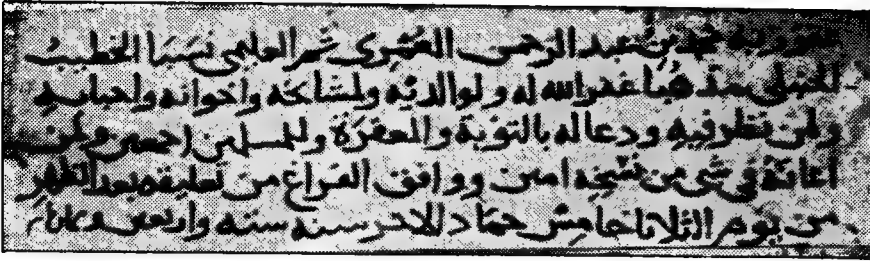 محمد بن عبد الرحمن العمري ثم العليمي نسبا الخطيب
الحنبلي مذهبا غفر الله له ولوالديه ولمشايخه واخوانه واحبابه
ولمن نظر فيه ودعا له بالتوبة والمغفرة وللمسلمين اجمعين ولمن
اعانه في شي من نسخه امين ووافق الفراغ من تعليقه بعد الظهر
من يوم الثلاثا خامس جماد الاخر سنه سته واربعين وثمانمائه